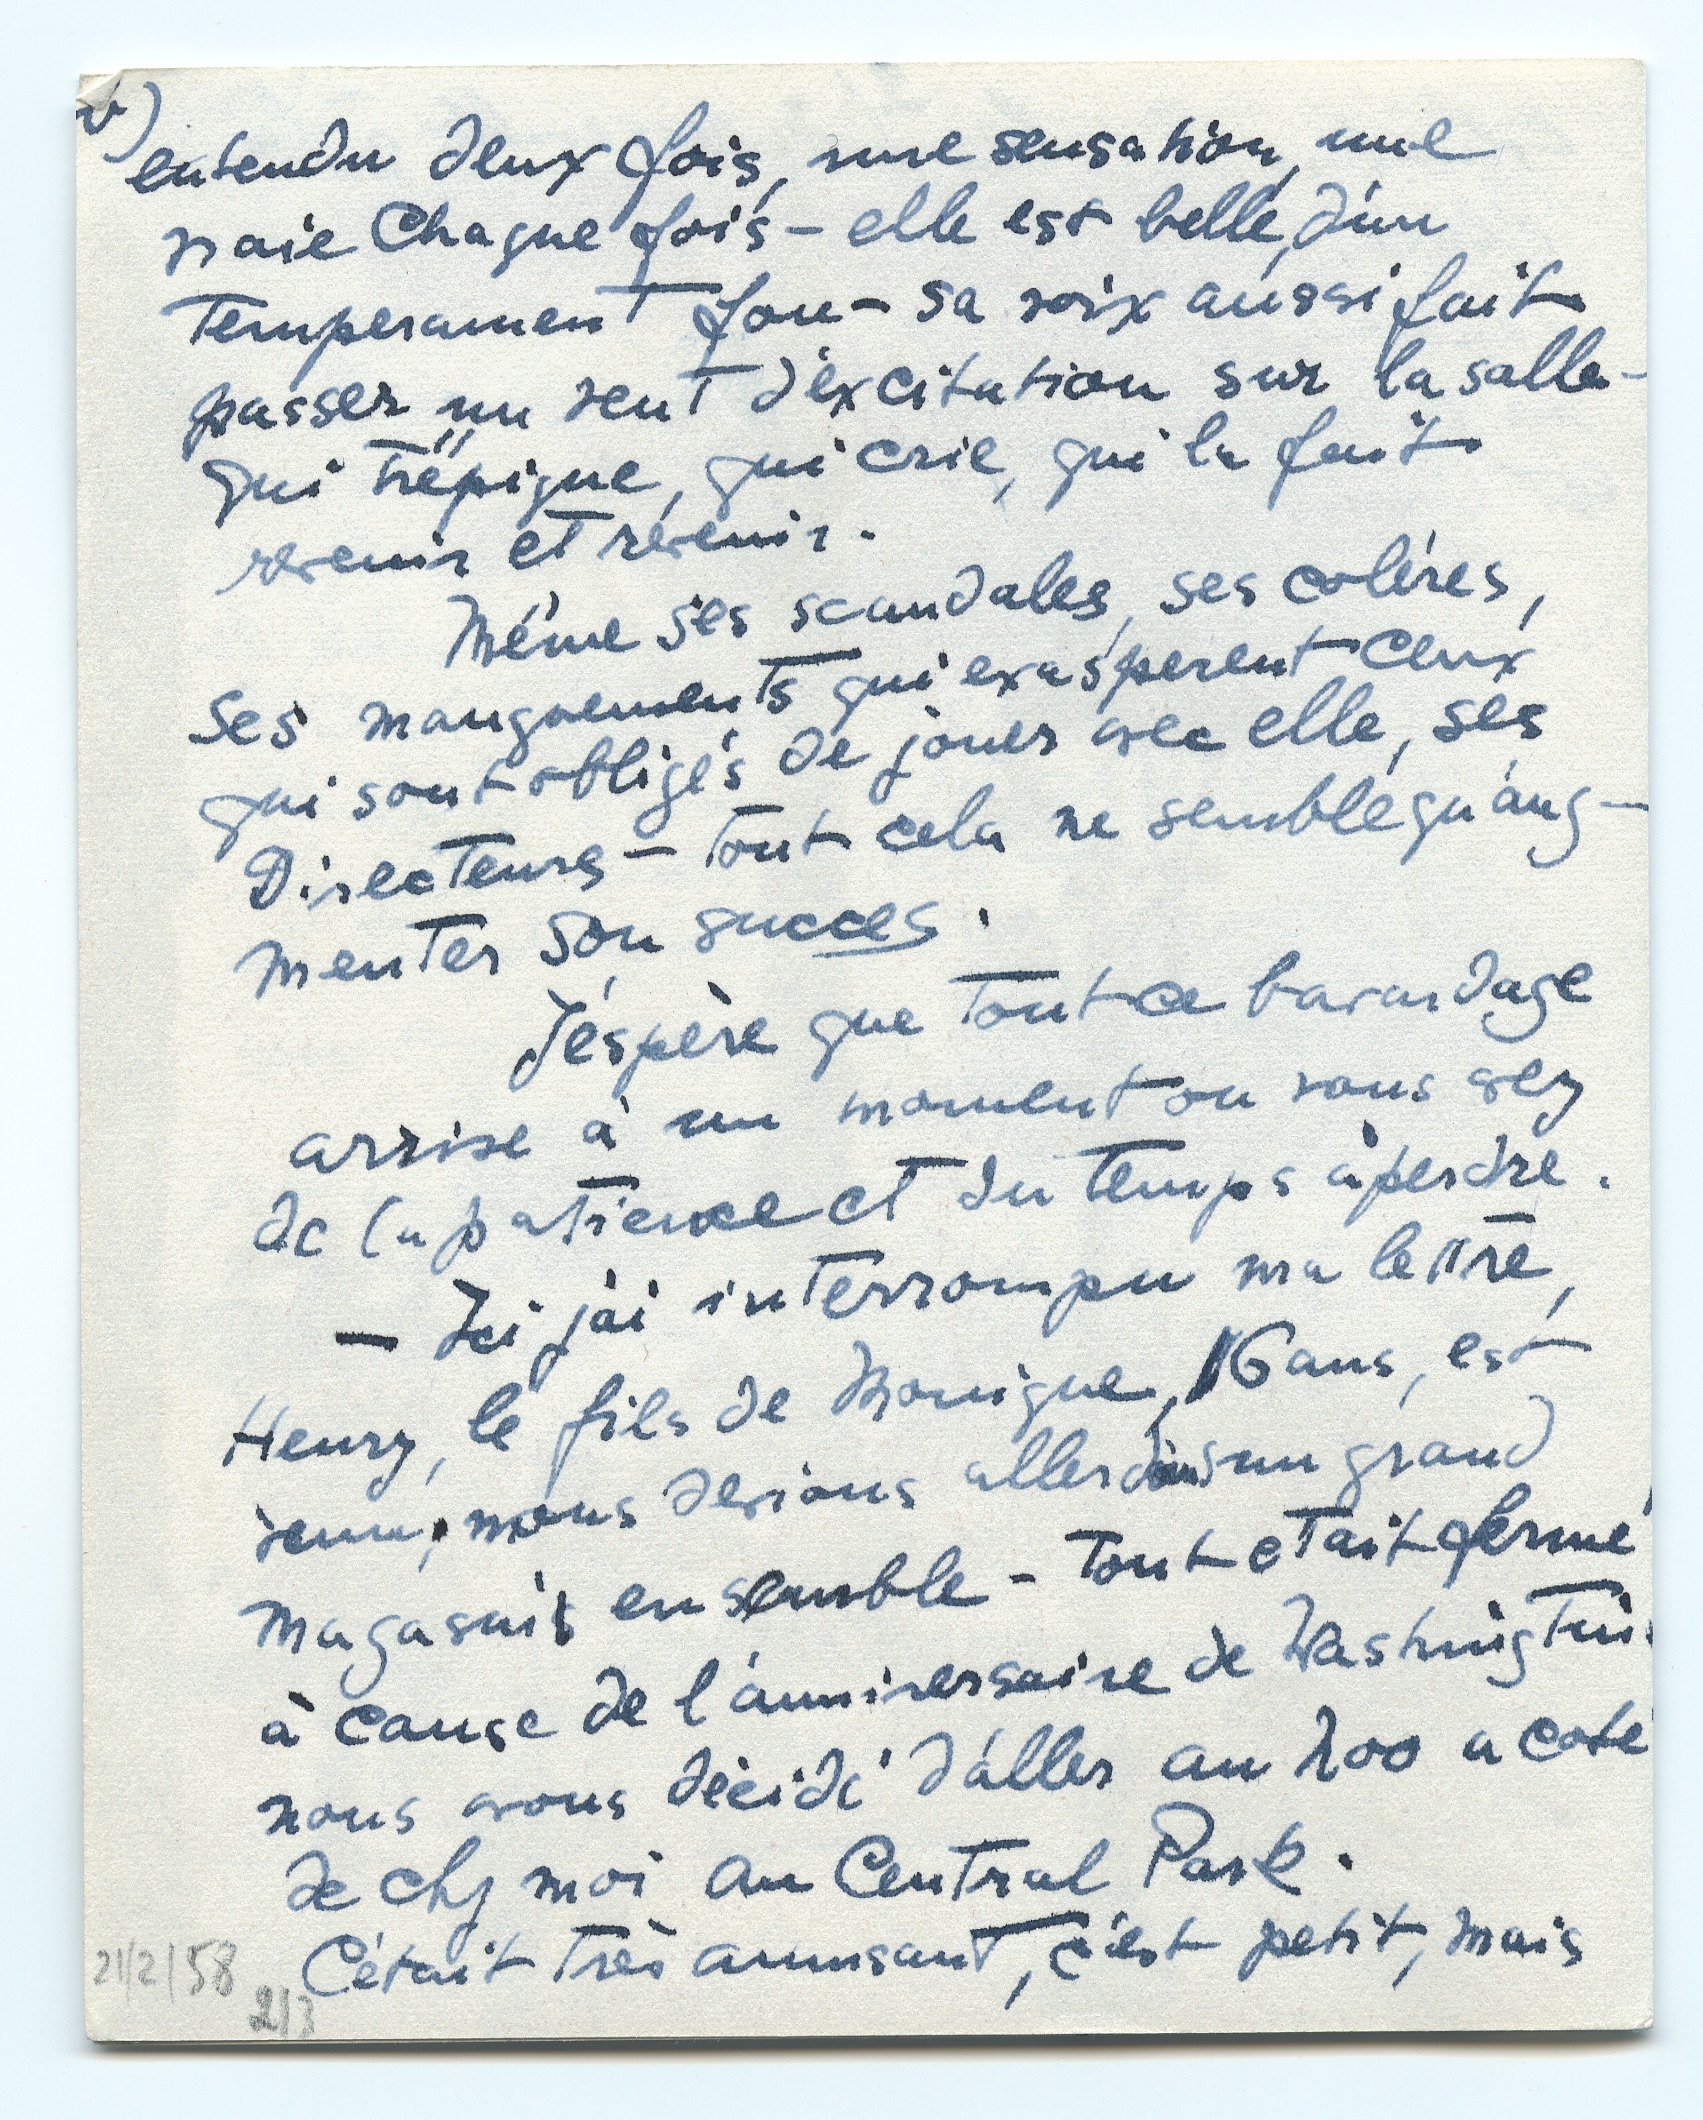 v)
entendu deux fois, une sensation, une
vraie chaque fois – elle est belle, d'un
temperament fou – sa voix aussi fait
passer un vent d'excitation sur la salle –
qui trépigne, qui crie, qui la fait
revenir et révenir.
Même ses scandales, ses coléres,
ses manquements qui exasperent ceux
qui sont obligés de jouer avec elle, ses
Directeurs – tout cela ne semble qu'aug–
menter son succes.
J'éspère que tout ce bavardage
arrive à un moment ou vous avez
de la patience et du temps à perdre.
— Ici j'ai interrompu ma lettre,
Henry, le fils de Monique, 16 ans, est
venu, nous devions aller dans un grand
magasin ensemble – tout etait fermé
à cause de l'anniversaire de Washington
nous avons décidé d'aller au zoo a coté
de chez moi au Central Park.
C'était très amusant, c'est petit, mais
21/2/58
2/3